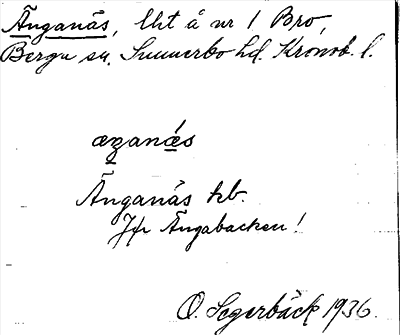 Änganäs, lht å nr 1 Bro,
Berga sn. Sunnerbo hd. Kronob. l.
æŋanæ̀s
Änganäs kb.
Jfr Ängabacken!
O. Segerbäck 1936.